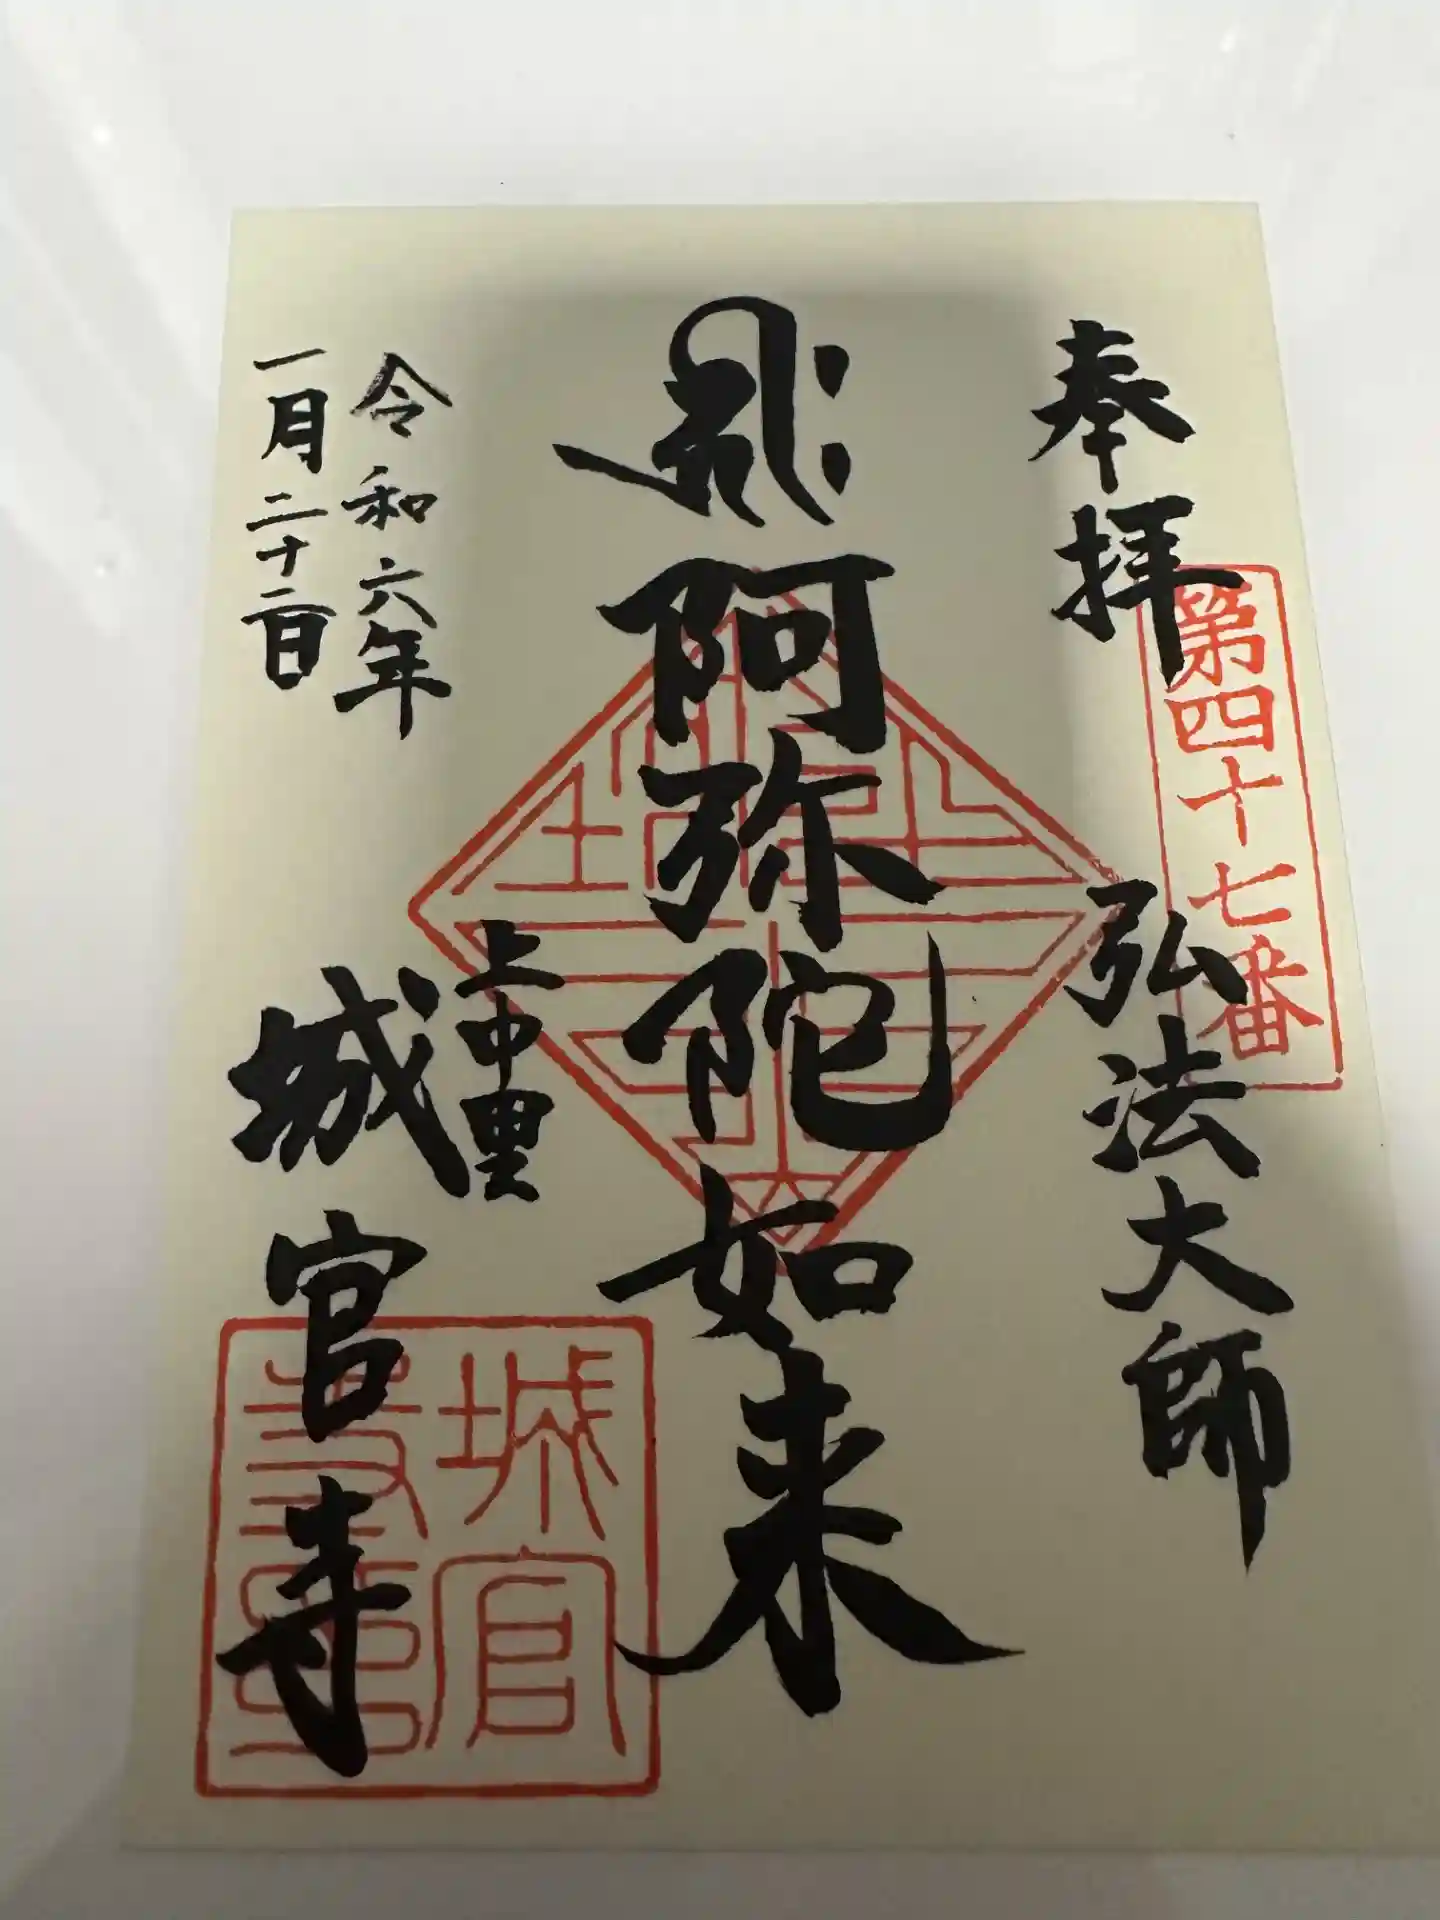 奉拝
第四十七番
弘法大師
阿弥陀如来
令和六年
一月二十二日
上中里
城官寺
城官